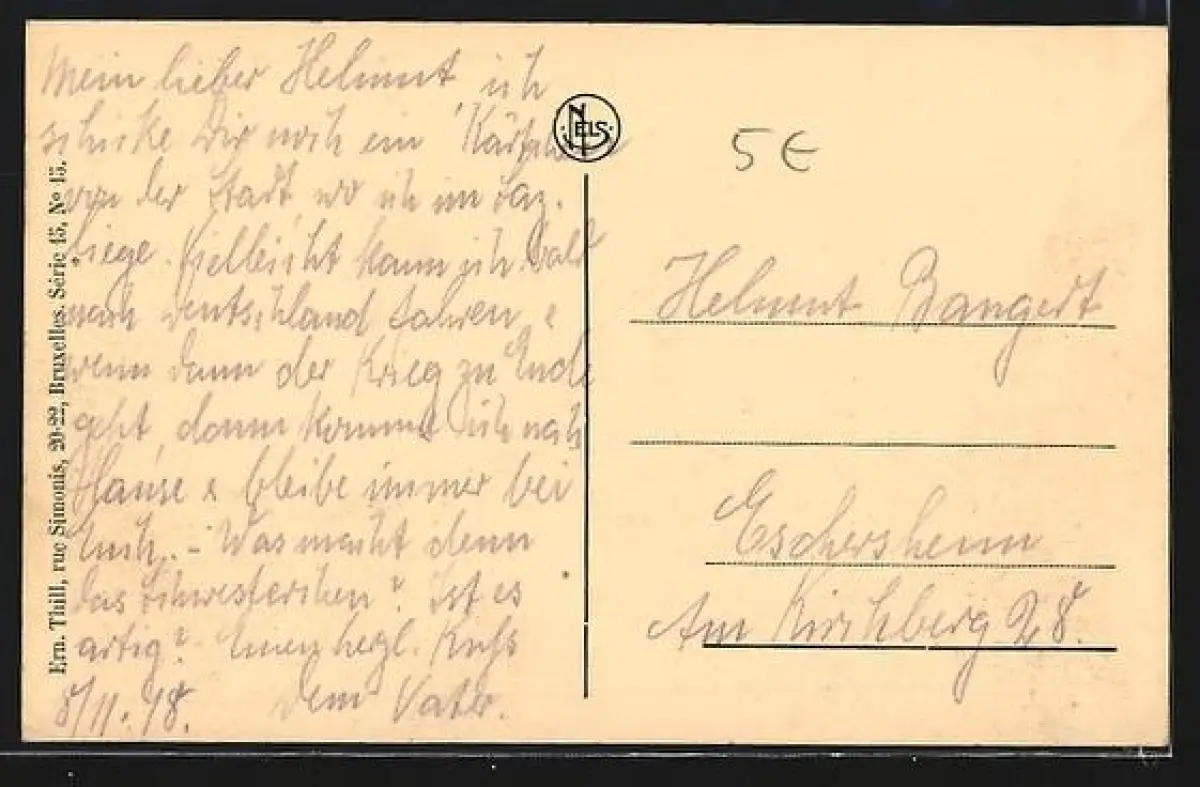 Mein lieber Helmut ich
schicke Dir noch ein Kärtchen
von der Stadt, wo ich im Laz.
liege. Vielleicht kann ich bald
nach Deutschland fahren, &
wenn dann der Krieg zu Ende
geht, dann komme ich nach
Hause & bleibe immer bei
Euch. - Was macht denn
das Schwesterchen? Ist es
artig? Einen herzl. Kuss
8/11.18. Dein Vater.
Ern. Thill, rue Simonis, 20-22, Bruxelles. Série 15, No 15.
NELS
5€
Helmut Bangert
Eschersheim
Am Kirchberg 28.